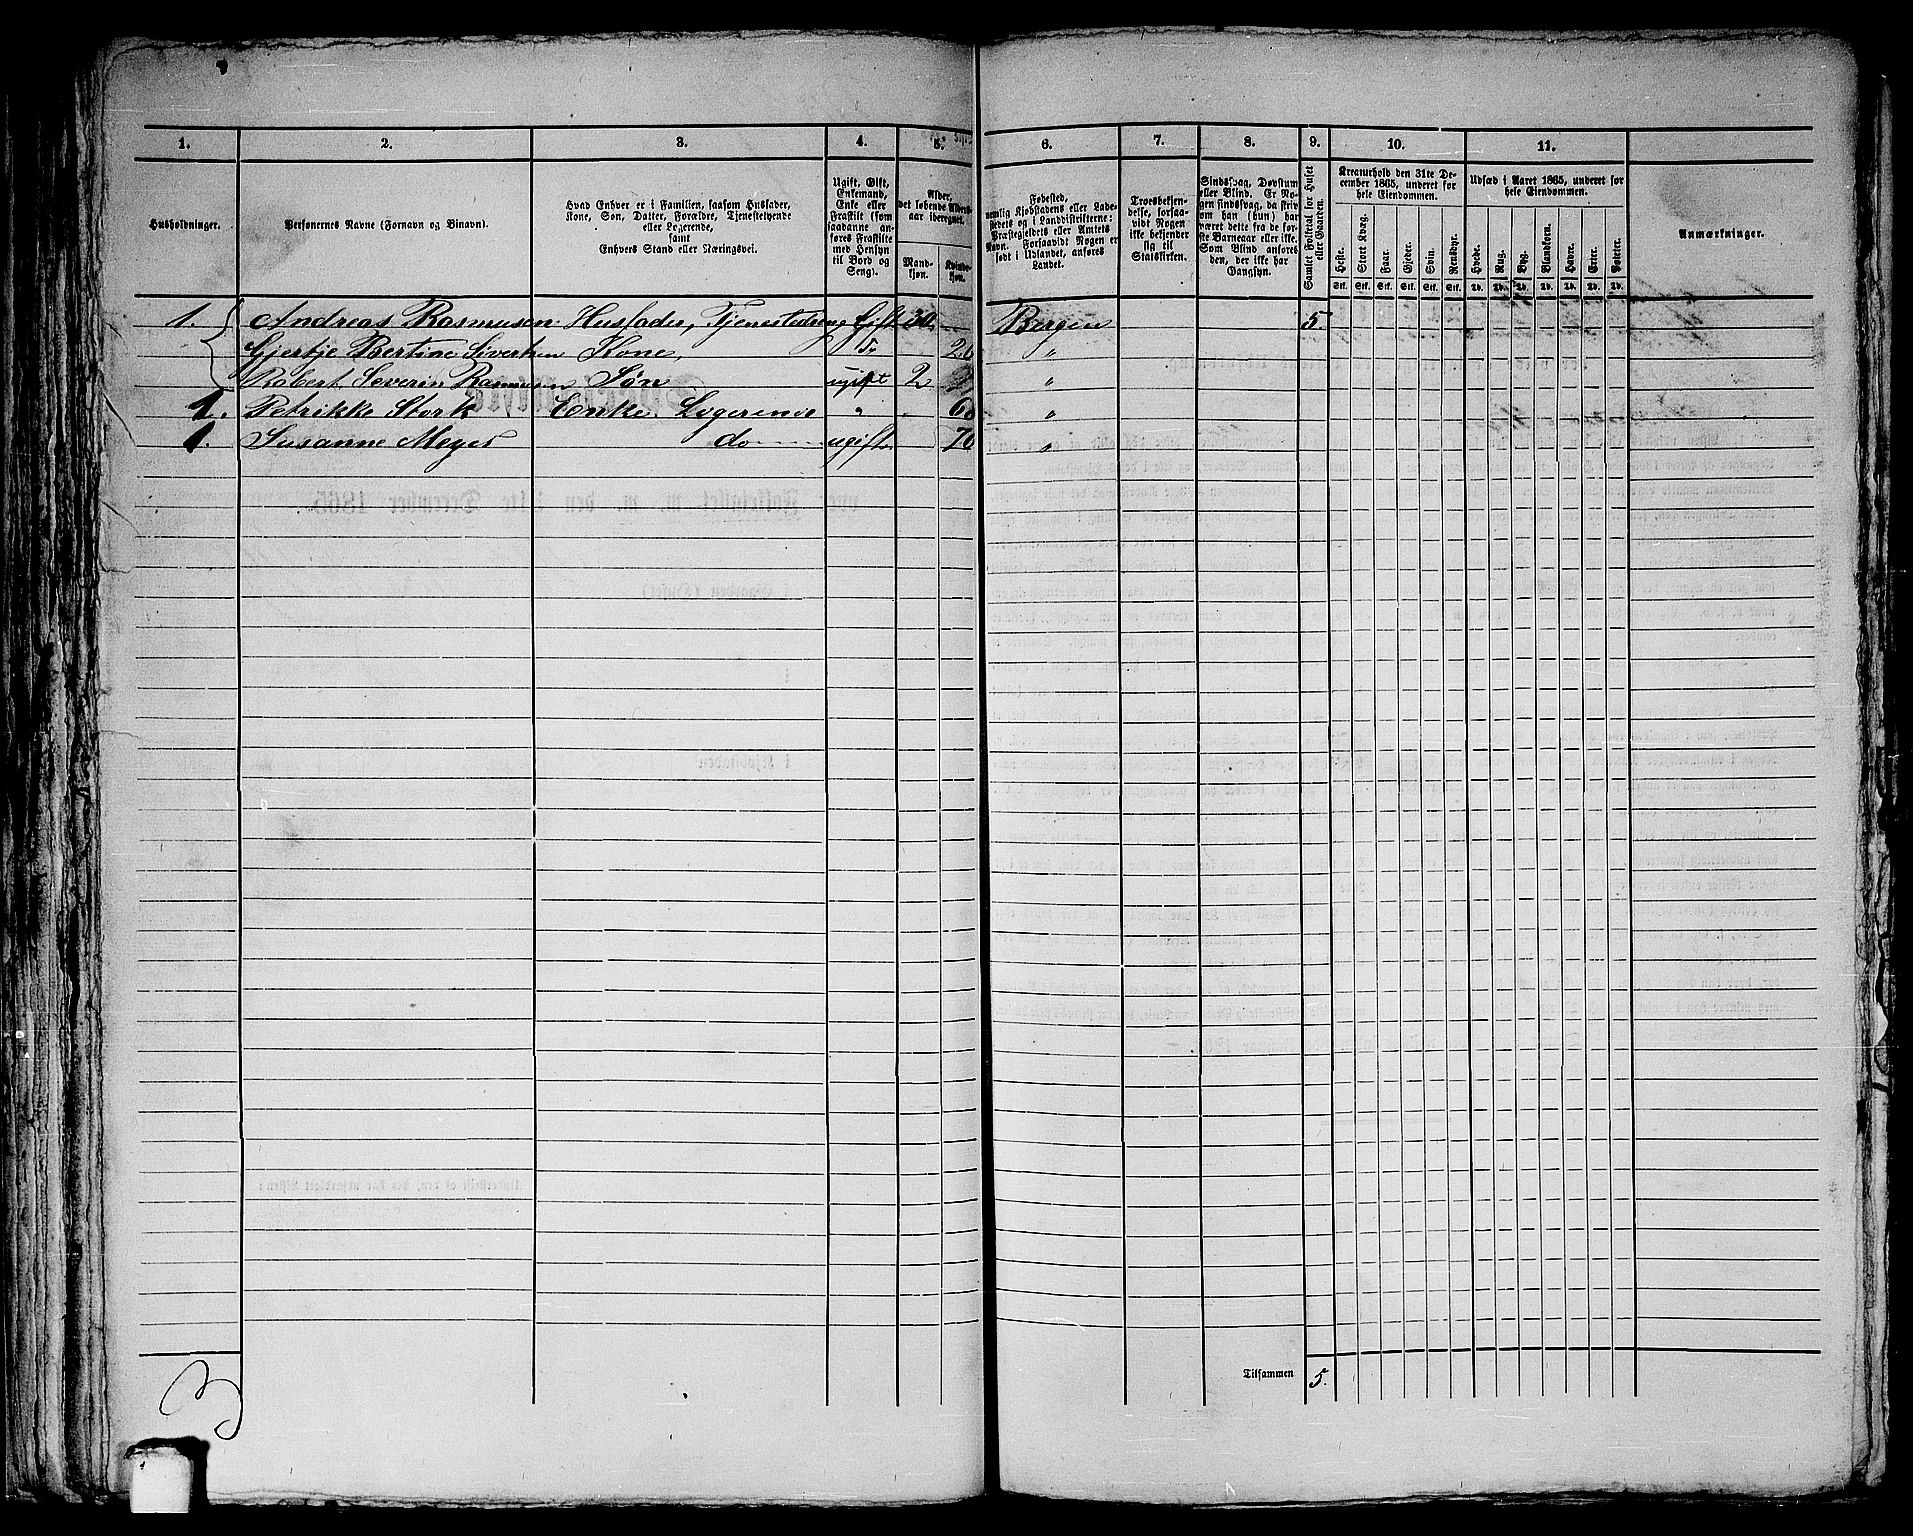 1. 2. 3. 4. 5. 6. 7. 8. 9. 10. 11.
Husholdninger.
Personernes Navne (Fornavn og Binavn).
Hvad Enhver er i Familien, saasom Husfader,
Kone, Søn, Datter, Forældre, Tjenestetyende
eller Logerende,
samt
Enhvers Stand eller Næringsvei.
Ugift, Gift,
Enkemand,
Enke eller
Fraskilt (som
saadanne an-
føres Fraskilte
med Hensyn
til Bord og
Seng).
Alder,
det løbende Alders-
aar iberegnet.
Mand-
kjøn.
Kvinde-
kjøn.
Fødested,
nemlig Kjøbstadens eller Lade-
stedets og i Landdistrikterne:
Præstegjeldets eller Amtets
Navn. Forsaavidt Nogen er
født i Udlandet, anføres
Landet.
Troesbekjen-
delse, forsaa-
vidt Nogen
ikke bekjender
sig til
Statskirken.
Sindssvag, Døvstum
eller Blind. Er No-
gen sindssvag, da skriv
om han (hun) har
været dette fra de før-
ste Barneaar eller ikke.
Som Blind anføres
den, der ikke har
Gangsyn.
Samlet Folketal for Huset
eller Gaarden.
Kreaturhold den 31te De-
cember 1865, underet for
hele Eiendommen.
Heste. Stort Kvæg. Faar. Gjeder. Svin. Rensdyr.
Stk. Stk. Stk. Stk. Stk. Stk.
Udsæd i Aaret 1865, underet for
hele Eiendommen.
Hvede. Rug. Byg. Blandkorn. Havre. Erter. Poteter.
Td. Td. Td. Td. Td. Td. Td.
Anmærkninger.
1. Andreas Rasmusen Husfader, Tjenestedreng Gift 30 Bergen 5.
Gjertje Bertine Sivertsen Kone, 26 "
Robert Severin Rasmusen Søn ugift 2 "
1. Petrikke Stork Enke, Logerende " "
1. Susanne Meyer do ugift 70 "
Tilsammen 5.
3